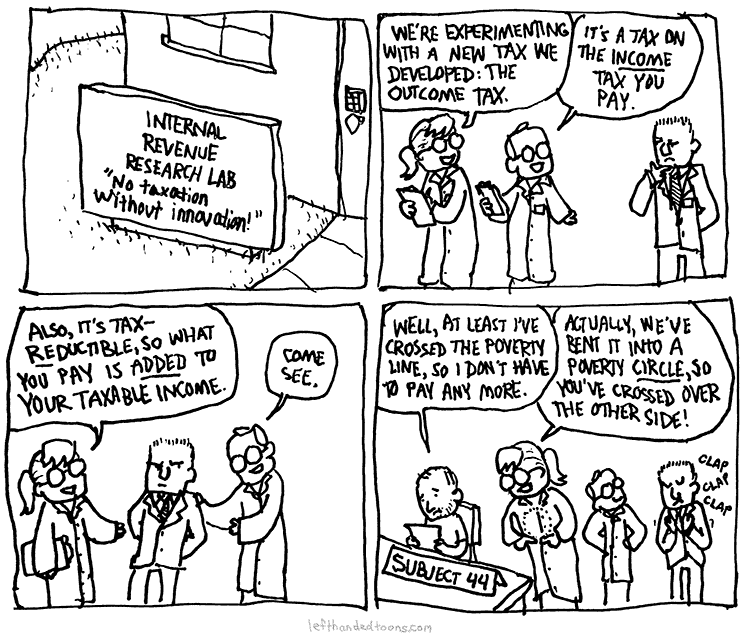 INTERNAL
REVENUE
RESEARCH LAB
"No taxation
without innovation!"
WE'RE EXPERIMENTING
WITH A NEW TAX WE
DEVELOPED: THE
OUTCOME TAX.
IT'S A TAX ON
THE INCOME
TAX YOU
PAY.
ALSO, IT'S TAX-
REDUCTIBLE, SO WHAT
YOU PAY IS ADDED TO
YOUR TAXABLE INCOME.
COME
SEE.
WELL, AT LEAST I'VE
CROSSED THE POVERTY
LINE, SO I DON'T HAVE
TO PAY ANY MORE.
ACTUALLY, WE'VE
BENT IT INTO A
POVERTY CIRCLE, SO
YOU'VE CROSSED OVER
THE OTHER SIDE!
CLAP
CLAP
CLAP
SUBJECT 44
lefthandedtoons.com